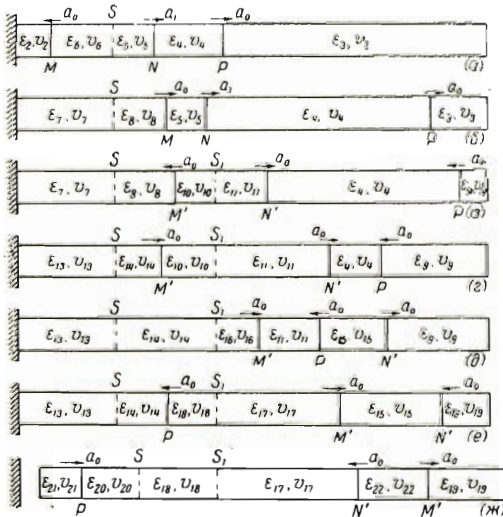 a₀ S a₁ a₀
ε₂, υ₂ ε₆, υ₆ ε₅, υ₅ ε₄, υ₄ ε₃, υ₃
M N P (а)
S a₀ a₁ a₀
ε₇, υ₇ ε₈, υ₈ ε₅, υ₅ ε₄, υ₄ ε₃, υ₃
M N P (б)
S a₀ S₁ a₀ a₀
ε₇, υ₇ ε₈, υ₈ ε₁₀, υ₁₀ ε₁₁, υ₁₁ ε₄, υ₄ ε₉, υ₉
M' N' P (в)
S a₀ S₁ a₀ a₀
ε₁₃, υ₁₃ ε₁₄, υ₁₄ ε₁₀, υ₁₀ ε₁₁, υ₁₁ ε₄, υ₄ ε₉, υ₉
M' N' P (г)
S S₁ a₀ a₀ a₀
ε₁₃, υ₁₃ ε₁₄, υ₁₄ ε₁₆, υ₁₆ ε₁₁, υ₁₁ ε₁₅, υ₁₅ ε₉, υ₉
M' P N' (д)
S a₀ S₁ a₀ a₀
ε₁₃, υ₁₃ ε₁₄, υ₁₄ ε₁₈, υ₁₈ ε₁₇, υ₁₇ ε₁₅, υ₁₅ ε₁₉, υ₁₉
P M' N' (е)
a₀ S S₁ a₀ a₀
ε₂₁, υ₂₁ ε₂₀, υ₂₀ ε₁₈, υ₁₈ ε₁₇, υ₁₇ ε₂₂, υ₂₂ ε₁₉, υ₁₉
P N' M' (ж)